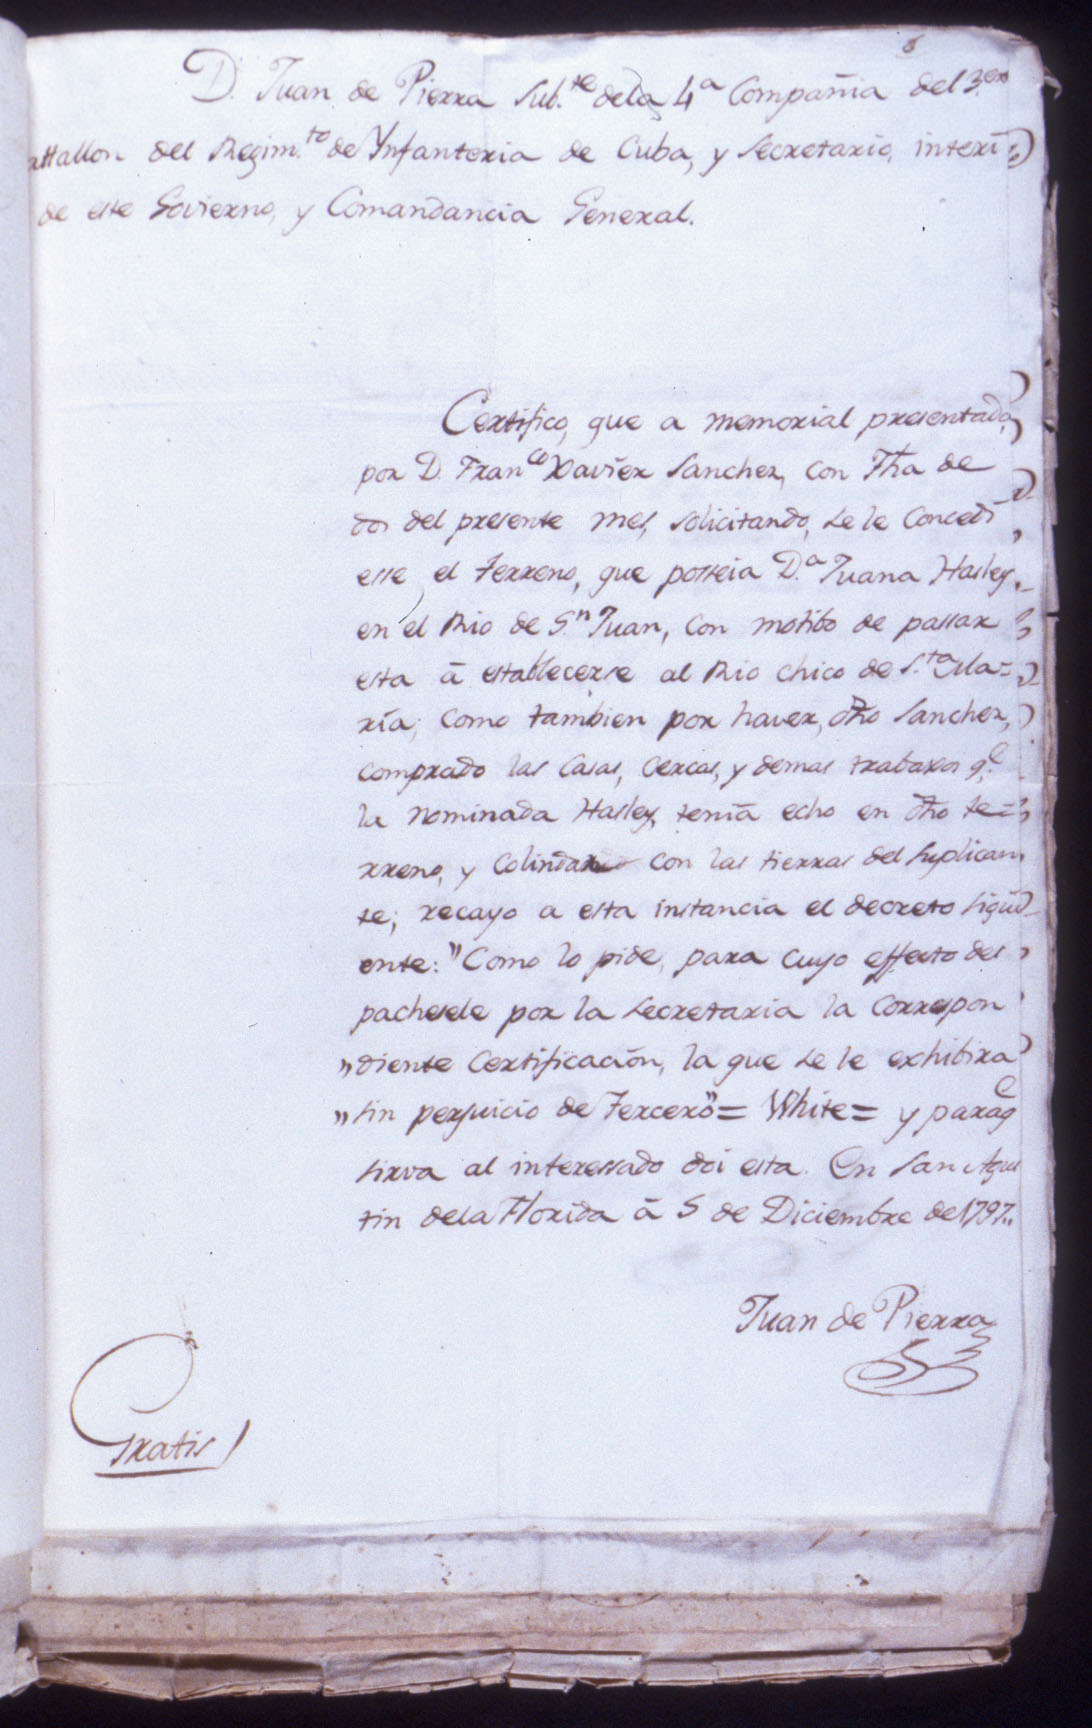 D. Juan de Pierra Sub.te de la 4a Compañia del 3.er
attallon del Regim.to de Ynfanteria de Cuba, y Secretario, interi
de este Govierno, y Comandancia General.
Certifico, que a memorial presentado,
por D. Fran.co Xavier Sanchez, con Fha de
dos del presente mes, solicitando, se le Concedi
esse el terreno, que posseia D.a Juana Hasley
en el Rio de S.n Juan, con motibo de passar
esta á establecerse al Rio chico de S.ta Ma=
ria; como tambien por haver, dho Sanchez,
comprado las Casas, Cercas, y demas trabaxos q.e
la nominada Hasley, tenia echo en dho te=
rreno, y Colindar con las tierras del Suplican
te; recayo a esta instancia el decreto sigui
ente: "Como lo pide, para cuyo effecto des
pachesele por la Secretaria la Correspon
"diente Certificación, la que se le exhibira
"sin perjuicio de tercero"= White= y para q.e
sirva al interessado doi esta. En San Agus
tin de la Florida á 5 de Diciembre de 1797..
Juan de Pierra
Gratis